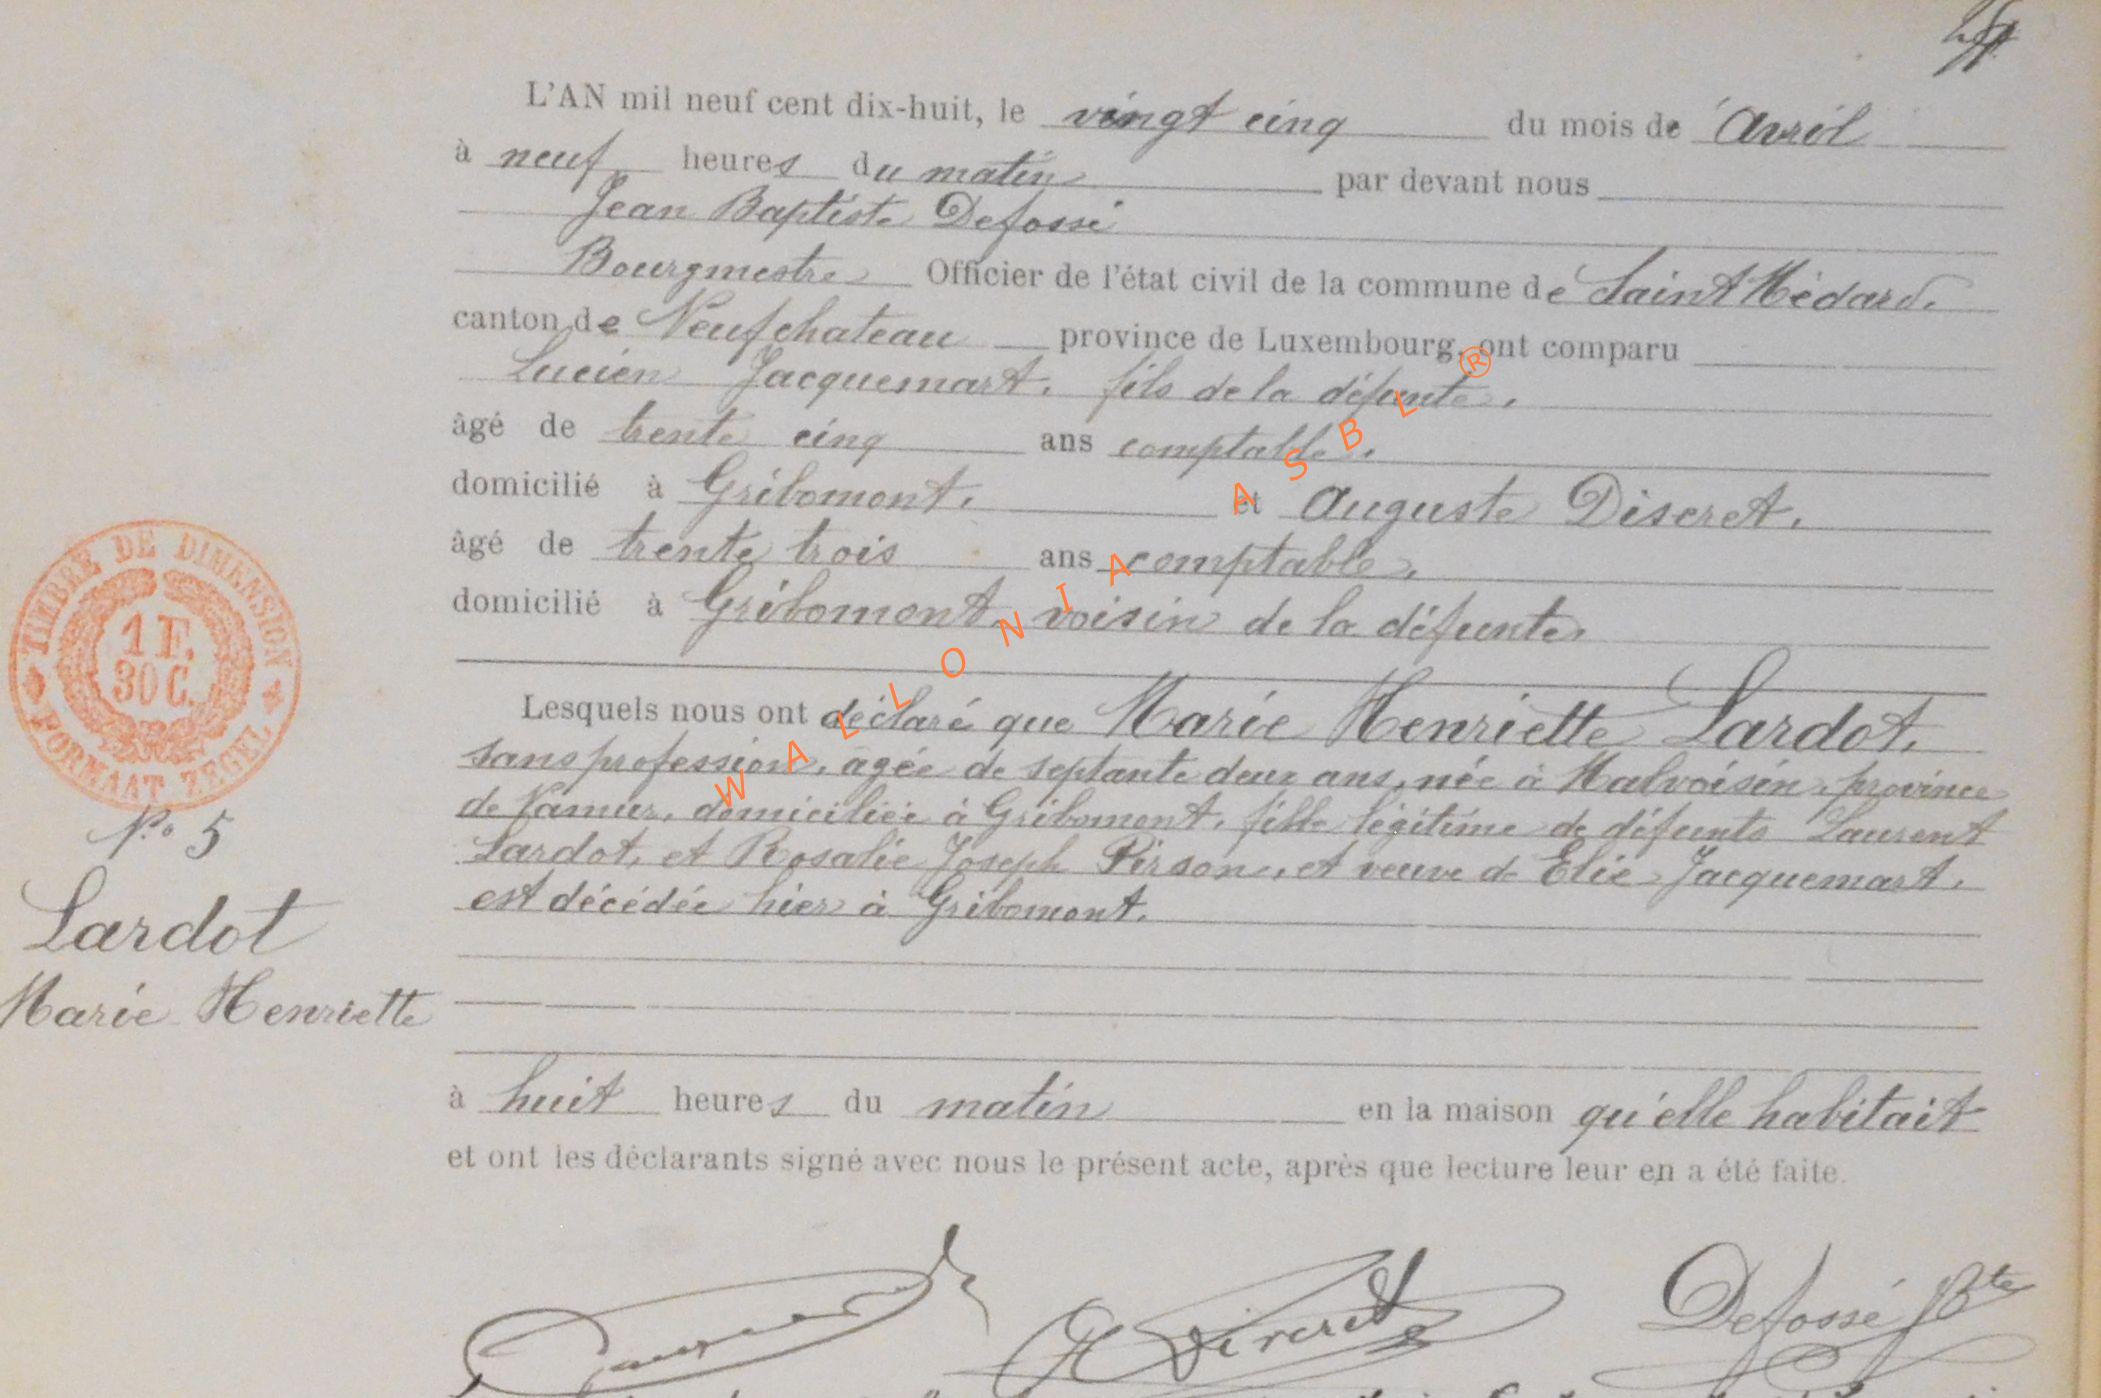 L'AN mil neuf cent dix-huit, le vingt cinq du mois de Avril
à neuf heures du matin par devant nous
Jean Baptiste Defossé
Bourgmestre Officier de l'état civil de la commune de Saint Médard.
canton de Neufchateau province de Luxembourg, ont comparu
Lucien Jacquemart, fils de la défunte,
âgé de trente cinq ans comptable,
domicilié à Gribomont, et Auguste Discret,
âgé de trente trois ans comptable,
domicilié à Gribomont, voisin de la défunte,
Lesquels nous ont déclaré que Marie Henriette Lardot,
sans profession, âgée de septante deux ans, née à Malvoisin, province
de Namur, domiciliée à Gribomont, fille légitime de défunts Laurent
Lardot, et Rosalie Joseph Pirson, et veuve de Elie Jacquemart,
est décédée hier à Gribomont,
à huit heures du matin en la maison qu'elle habitait
et ont les déclarants signé avec nous le présent acte, après que lecture leur en a été faite.
TIMBRE DE DIMENSION
1 F.
30 C.
FORMAAT ZEGEL
No 5
Lardot
Marie Henriette
WALLONIA ASBL ®
Discret
Defossé JBte